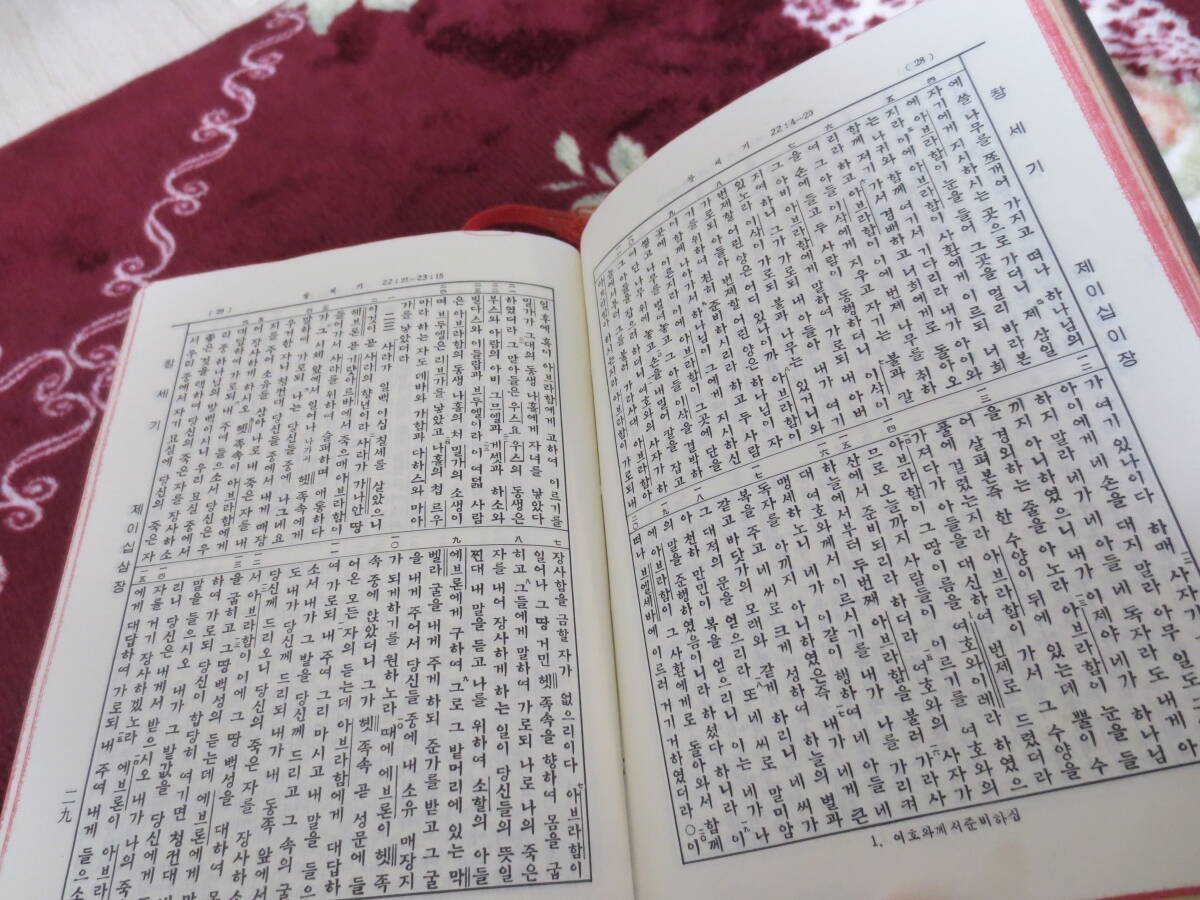 (28)
창 세 기
22:4—23
창 세 기
제이십이장
에 쓸 나무를 쪼개어 가지고 떠나 하나님의
자기에게 지시하시는 곳으로 가더니 제 삼일
에 아브라함이 눈을 들어 그곳을 멀리 바라본
지라 이에 아브라함이 사환에게 이르되 너희
는 나귀와 함께 여기서 기다리라 내가 아이와
함께 저기 가서 경배하고 너희에게로 돌아오
리라 하고 아브라함이 이에 번제 나무를 취하
여 그 아들 이삭에게 지우고 자기는 불과 칼
을 손에 들고 두 사람이 동행하더니 이삭이
그 아비 아브라함에게 말하여 가로되 내 아버
지여 하니 그가 가로되 내 아들아 내가 여기
있노라 이삭이 가로되 불과 나무는 있거니와
번제할 어린 양은 어디 있나이까 아브라함이
가로되 아들아 번제할 어린 양은 하나님이 자
기를 위하여 친히 준비하시리라 하고 두 사람
이 함께 나아가서 하나님이 그에게 지시하신
곳에 이른지라 이에 아브라함이 그곳에 단을
쌓고 나무를 벌여놓고 그 아들 이삭을 결박하
여 단 나무 위에 놓고 손을 내밀어 칼을 잡고
가 여기 있나이다 하매 사자
아이에게 네 손을 대지 말라 아무 일도
하지 말라 네가 네 아들 네 독자라도 내게 아
끼지 아니하였으니 내가 이제야 네가 하나님
을 경외하는 줄을 아노라 아브라함이 눈을 들
어 살펴본즉 한 수양이 뒤에 있는데 뿔이 수
풀에 걸렸는지라 아브라함이 가서 그 수양을
가져다가 아들을 대신하여 번제로 드렸더라
아브라함이 그 땅 이름을 여호와이레라 하였으
므로 오늘까지 사람들이 이르기를 여호와의
산에서 준비되리라 하더라 여호와의 사자가
하늘에서부터 두번째 아브라함을 불러 가라사
대 여호와께서 이르시기를 내가 나를 가리켜
맹세하노니 네가 이같이 행하여 네 아들 네
독자를 아끼지 아니하였은즉 내가 네게 큰
복을 주고 네 씨로 크게 성하여 하늘의 별과
같고 바닷가의 모래와 같게 하리니 네 씨가
그 대적의 문을 얻으리라 또 네 씨로 말미암
아 천하 만민이 복을 얻으리니 이는 네가 나
의 말을 준행하였음이니라 하셨다 하니라 이
에 아브라함이 그 사환에게로 돌아와서 함께
떠나 브엘세바에 이르러 거기 거하였더라 ○이
1. 여호와께서준비하심
22:21—23:15
창 세 기
(29)
일 후에 혹이 아브라함에게 고하여 이르기를
밀가가 그대의 동생 나홀에게 자녀를 낳았다
하였더라 그 맏아들은 우스요 우스의 동생은
부스와 아람의 아비 그므엘과 게셋과 하소와
빌다스와 이들랍과 브두엘이라 이 여덟 사람
은 아브라함의 동생 나홀의 처 밀가의 소생이
며 브두엘은 리브가를 낳았고 나홀의 첩 르우
마라 하는 자도 데바와 가함과 다하스와 마아
가를 낳았더라
二三 사라가 일백 이십 칠세를 살았으니
이것이 곧 사라의 향년이라 사라가 가나안 땅
헤브론 곧 기럇아르바에서 죽으매 아브라함이
들어가서 사라를 위하여 슬퍼하며 애통하다
가 그 시체 앞에서 일어나 나가서 헷 족속에게
말하여 가로되 나는 당신들 중에 나그네요
우거한 자니 청컨대 당신들 중에서 내게 매장
지를 주어 소유를 삼아 나로 내 죽은 자를 내
어 장사하게 하시오 헷 족속이 아브라함에게
대답하여 가로되 내 주여 들으소서 당신은 우
리 중 하나님의 방백이시니 우리 묘실 중에서
좋은 것을 택하여 당신의 죽은 자를 장사하소
서 우리 중에서 자기 묘실에 당신의 죽은 자
장사함을 금할 자가 없으리이다 아브라함이
일어나 그 땅 거민 헷 족속을 향하여 몸을 굽
히고 그들에게 말하여 가로되 나로 나의 죽은
자를 내어 장사하게 하는 일이 당신들의 뜻일
찐대 내 말을 듣고 나를 위하여 소할의 아들
에브론에게 구하여 그로 그 밭머리에 있는 막
벨라 굴을 내게 주게 하되 준가를 받고 그 굴
을 내게 주어서 당신들 중에 내 소유 매장지
가 되게하기를 원하노라 때에 에브론이 헷 족
속 중에 앉았더니 그가 헷 족속 곧 성문에 들
어온 모든 자의 듣는데 아브라함에게 대답하
여 가로되 내 주여 그리 마시고 내 말을 들으
소서 내가 그 밭을 당신께 드리고 그 속의 굴
도 내가 당신께 드리되 내가 내 동족 앞에서
당신께 드리오니 당신의 죽은 자를 장사하소
서 아브라함이 이에 그 땅 백성을 대하여 몸
을 굽히고 그 땅 백성의 듣는데 에브론에게
말하여 가로되 당신이 합당히 여기면 청컨대
내 말을 들으시오 내가 그 밭값을 당신에게
리니 당신은 내게서 받으시오 내가 나의 죽
자를 거기 장사하겠노라 에브론이 아브라
에게 대답하여 가로되 내 주여 내게 들으소
창 세 기
제이십삼장
二九